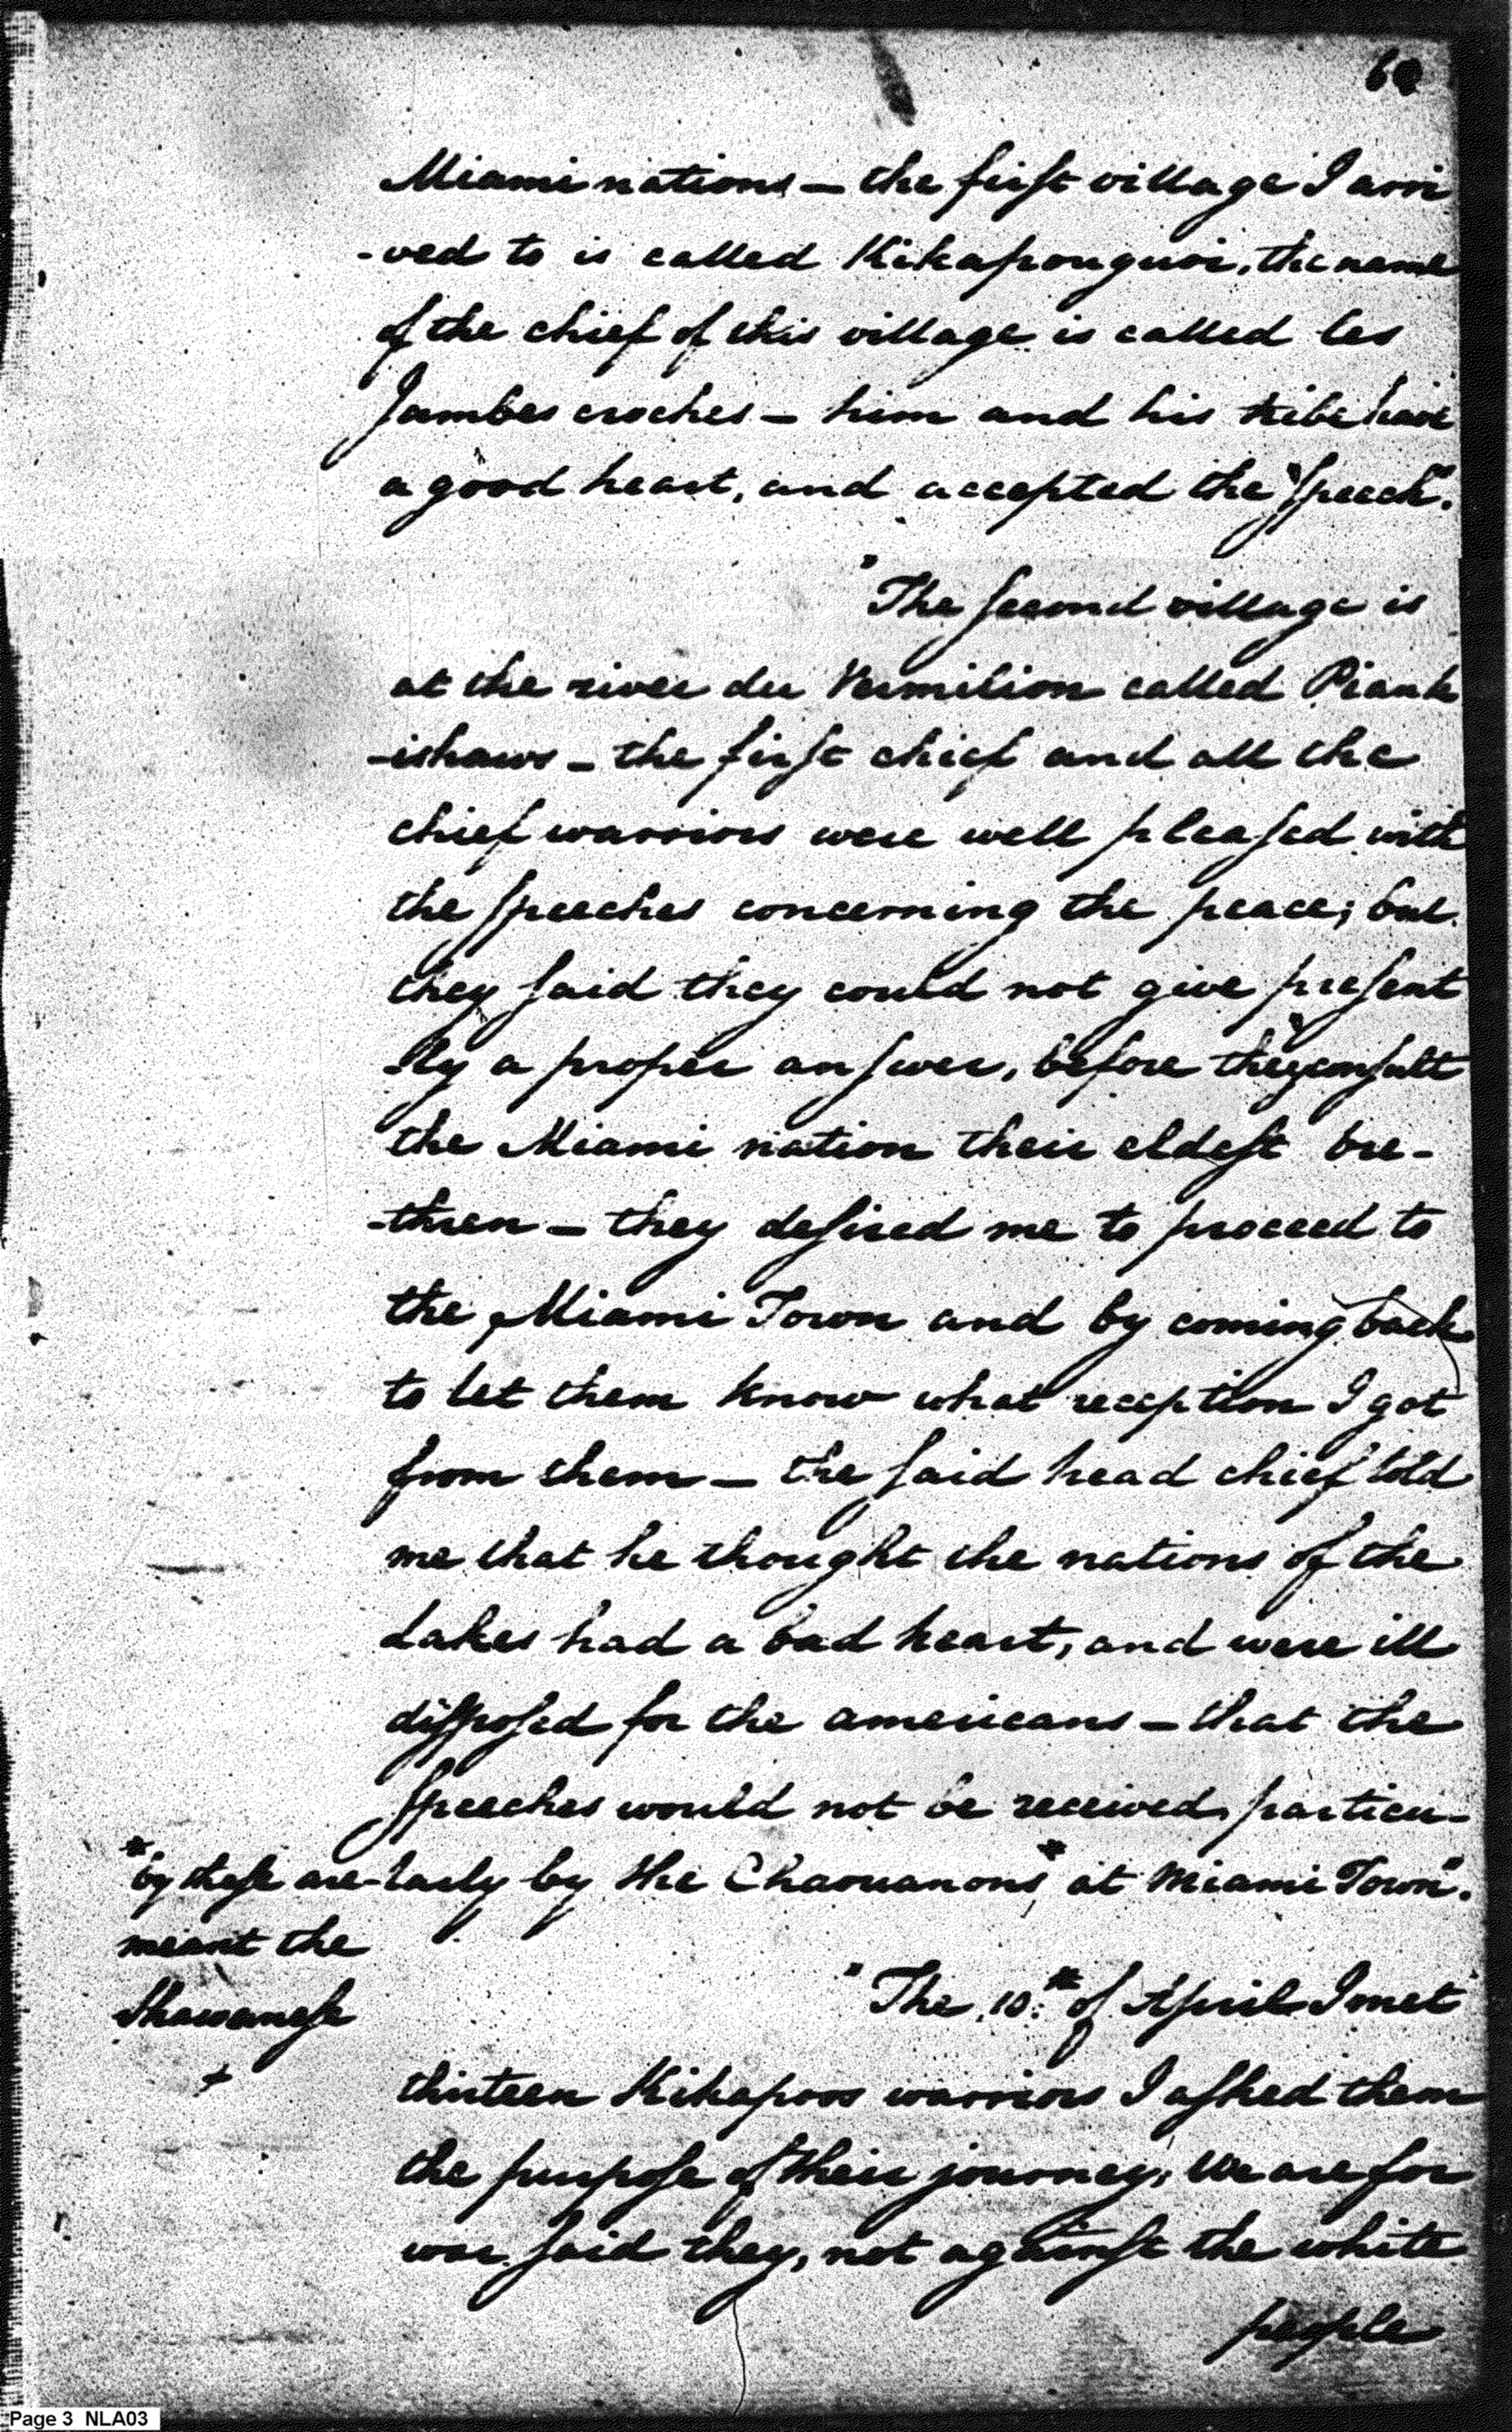 Miami nations — the first village I arri
-ved to is called Kikapouguoi, the name
of the chief of this village is called les
Jambes croches — him and his tribe have
a good heart, and accepted the "speech".
"The second village is
at the river du Vermilion called Piank
-ishaws — the first chief and all the
chief warriors were well pleased with
the speeches concerning the peace; but
they said they could not give present
-ly a proper answer, before they consult
the Miami nation their eldest bre-
-thren — they desired me to proceed to
the Miami Town and by coming back
to let them know what reception I got
from them — the said head chief told
me that he thought the nations of the
Lakes had a bad heart, and were ill
disposed for the americans — that the
speeches would not be received, particu-
-larly by the Chaouanons* at Miami Town".
*by these are
meant the
Shawanese
+
"The 10:th of April I met
thirteen Kikapoos warriors I asked them
the purpose of their journey, We are for
war said they, not against the white
people
Page 3 NLA03